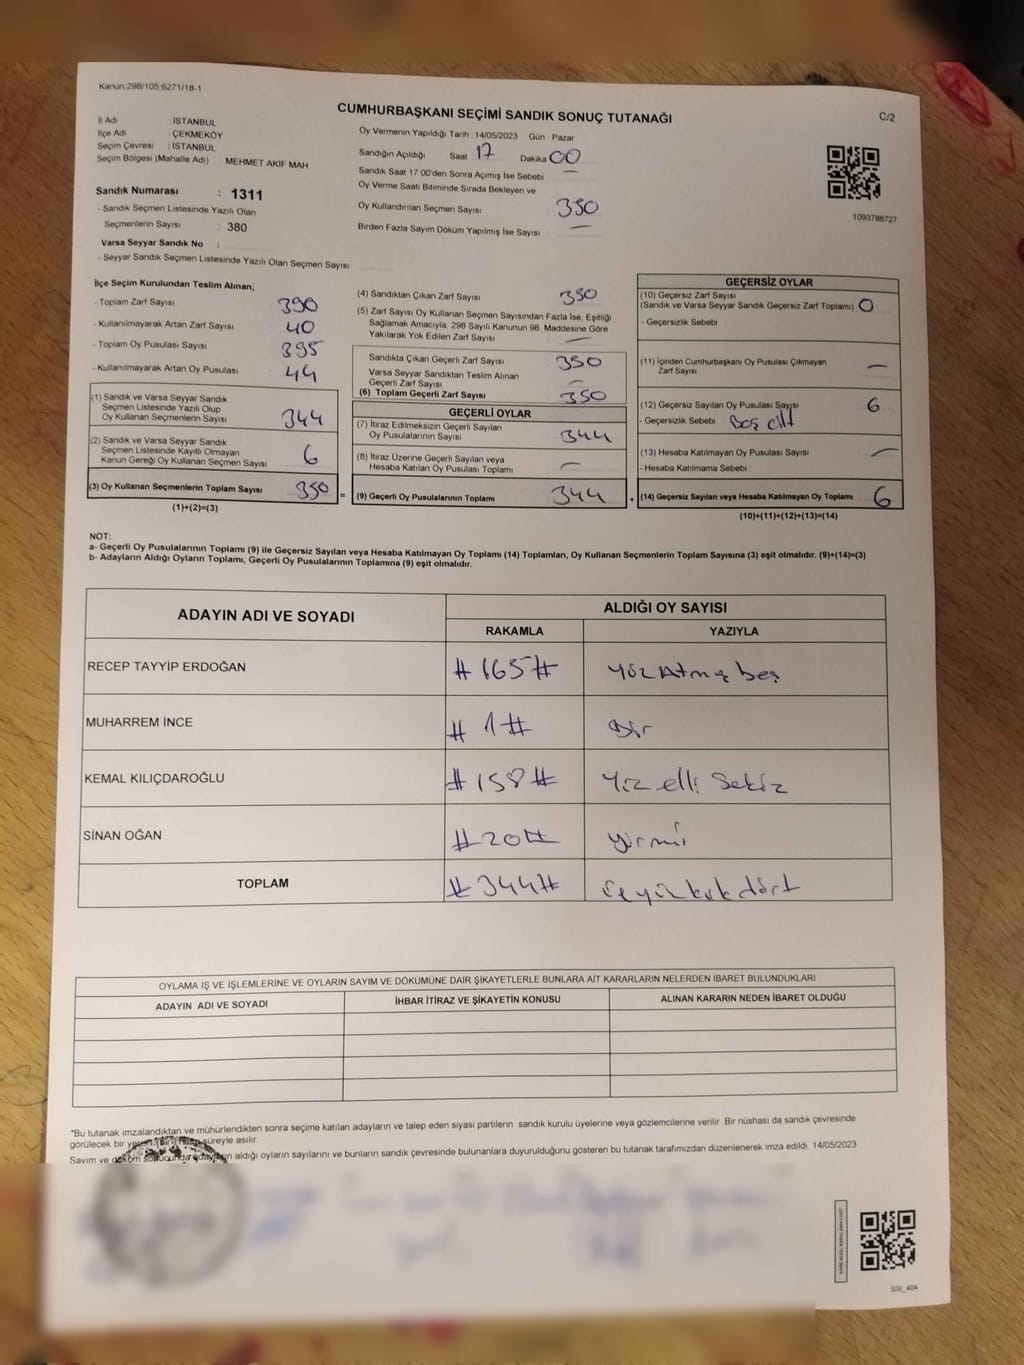 Kanun:298/105,6271/18-1
C/2
CUMHURBAŞKANI SEÇİMİ SANDIK SONUÇ TUTANAĞI
İl Adı : İSTANBUL
İlçe Adı : ÇEKMEKÖY
Seçim Çevresi : İSTANBUL
Seçim Bölgesi (Mahalle Adı) MEHMET AKİF MAH.
Sandık Numarası : 1311
- Sandık Seçmen Listesinde Yazılı Olan
Seçmenlerin Sayısı : 380
Varsa Seyyar Sandık No :
- Seyyar Sandık Seçmen Listesinde Yazılı Olan Seçmen Sayısı
Oy Vermenin Yapıldığı Tarih :14/05/2023 Gün Pazar
Sandığın Açıldığı Saat 17 Dakika 00
Sandık Saat 17:00'den Sonra Açımış İse Sebebi —
Oy Verme Saati Bitiminde Sırada Bekleyen ve
Oy Kullandırılan Seçmen Sayısı 350
Birden Fazla Sayım Döküm Yapılmış İse Sayısı —
1093788727
İlçe Seçim Kurulundan Teslim Alınan;
- Toplam Zarf Sayısı 390
- Kullanılmayarak Artan Zarf Sayısı 40
- Toplam Oy Pusulası Sayısı 395
- Kullanılmayarak Artan Oy Pusulası 44
(1) Sandık ve Varsa Seyyar Sandık
Seçmen Listesinde Yazılı Olup
Oy Kullanan Seçmenlerin Sayısı 344
(2) Sandık ve Varsa Seyyar Sandık
Seçmen Listesinde Kayıtlı Olmayan
Kanun Gereği Oy Kullanan Seçmen Sayısı 6
(3) Oy Kullanan Seçmenlerin Toplam Sayısı 350 =
(1)+(2)=(3)
(4) Sandıktan Çıkan Zarf Sayısı 350
(5) Zarf Sayısı Oy Kullanan Seçmen Sayısından Fazla İse, Eşitliği
Sağlamak Amacıyla, 298 Sayılı Kanunun 98. Maddesine Göre
Yakılarak Yok Edilen Zarf Sayısı —
Sandıkta Çıkan Geçerli Zarf Sayısı 350
Varsa Seyyar Sandıktan Teslim Alınan
Geçerli Zarf Sayısı —
(6) Toplam Geçerli Zarf Sayısı 350
GEÇERLİ OYLAR
(7) İtiraz Edilmeksizin Geçerli Sayılan
Oy Pusulalarının Sayısı 344
(8) İtiraz Üzerine Geçerli Sayılan veya
Hesaba Katılan Oy Pusulası Toplamı —
(9) Geçerli Oy Pusulalarının Toplamı 344 +
GEÇERSİZ OYLAR
(10) Geçersiz Zarf Sayısı
(Sandık ve Varsa Seyyar Sandık Geçersiz Zarf Toplamı) 0
- Geçersizlik Sebebi
(11) İçinden Cumhurbaşkanı Oy Pusulası Çıkmayan
Zarf Sayısı —
(12) Geçersiz Sayılan Oy Pusulası Sayısı 6
- Geçersizlik Sebebi Boş
(13) Hesaba Katılmayan Oy Pusulası Sayısı —
- Hesaba Katılmama Sebebi
(14) Geçersiz Sayılan veya Hesaba Katılmayan Oy Toplamı 6
(10)+(11)+(12)+(13)=(14)
NOT:
a- Geçerli Oy Pusulalarının Toplamı (9) ile Geçersiz Sayılan veya Hesaba Katılmayan Oy Toplamı (14) Toplamları, Oy Kullanan Seçmenlerin Toplam Sayısına (3) eşit olmalıdır. (9)+(14)=(3)
b- Adayların Aldığı Oyların Toplamı, Geçerli Oy Pusulalarının Toplamına (9) eşit olmalıdır.
ADAYIN ADI VE SOYADI ALDIĞI OY SAYISI
RAKAMLA YAZIYLA
RECEP TAYYİP ERDOĞAN #165# Yüz Atmış beş
MUHARREM İNCE #1# Bir
KEMAL KILIÇDAROĞLU #158# Yüz elli Sekiz
SİNAN OĞAN #20# yirmi
TOPLAM #344# Üç yüz kırk dört
OYLAMA İŞ VE İŞLEMLERİNE VE OYLARIN SAYIM VE DÖKÜMÜNE DAİR ŞİKAYETLERLE BUNLARA AİT KARARLARIN NELERDEN İBARET BULUNDUKLARI
ADAYIN ADI VE SOYADI İHBAR İTİRAZ VE ŞİKAYETİN KONUSU ALINAN KARARIN NEDEN İBARET OLDUĞU
*Bu tutanak imzalandıktan ve mühürlendikten sonra seçime katılan adayların ve talep eden siyasi partilerin sandık kurulu üyelerine veya gözlemcilerine verilir. Bir nüshası da sandık çevresinde
görülecek bir yere süreyle asılır.
Sayım ve döküm sonucunda adayların aldığı oyların sayılarını ve bunların sandık çevresinde bulunanlara duyurulduğunu gösteren bu tutanak tarafımızdan düzenlenerek imza edildi. 14/05/2023
SSI_404